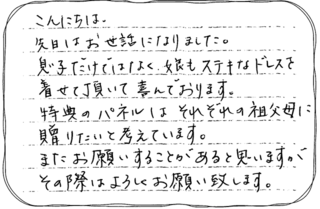 こんにちは。
先日はお世話になりました。
息子だけではなく、娘もステキなドレスを
着せて頂いて喜んでおります。
特典のパネルはそれぞれの祖父母に
贈りたいと考えています。
またお願いすることがあると思いますが
その際はよろしくお願い致します。